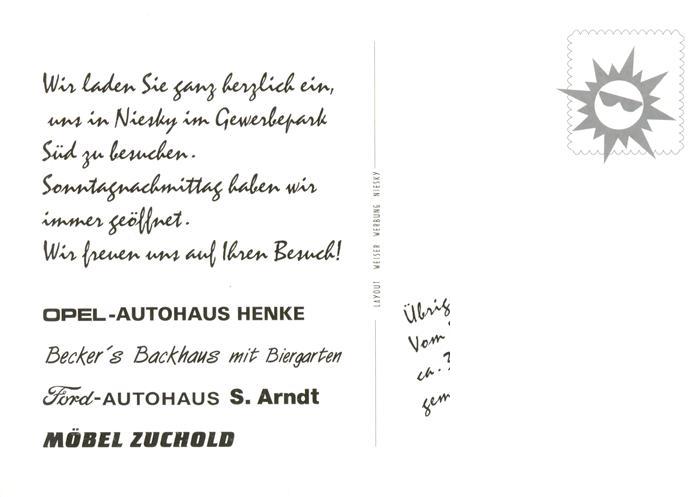 Wir laden Sie ganz herzlich ein,
uns in Niesky im Gewerbepark
Süd zu besuchen.
Sonntagnachmittag haben wir
immer geöffnet.
Wir freuen uns auf Ihren Besuch!
OPEL-AUTOHAUS HENKE
Becker's Backhaus mit Biergarten
Ford-AUTOHAUS S. Arndt
MÖBEL ZUCHOLD
LAYOUT WEISER WERBUNG NIESKY
Vom
ca.